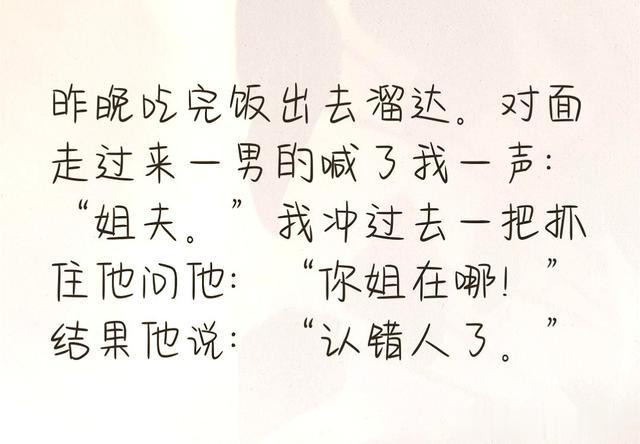 昨晚吃完饭出去溜达。对面
走过来一男的喊了我一声：
“姐夫。”我冲过去一把抓
住他问他：“你姐在哪！”
结果他说：“认错人了。”